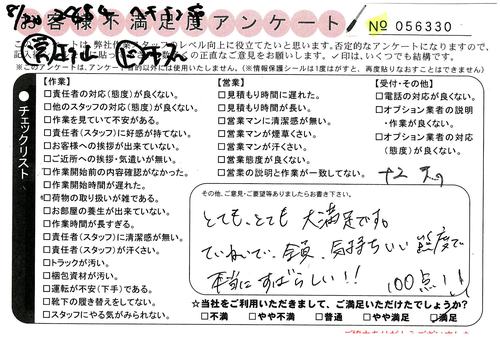 8/20
お客様不満足度アンケート
№ 056330
※このアンケートは、アンケート目的以外には使用いたしません。(※情報保護シールは1度はがすと、再度貼りなおすことはできません)
チェックリスト
【作業】
□責任者の対応(態度)が良くない。
□他のスタッフの対応(態度)が良くない。
□作業を見ていて不安がある。
□責任者(スタッフ)に好感が持てない。
□お客様への挨拶が出来ていない。
□ご近所への挨拶・気遣いが無い。
□作業開始前の内容確認がなかった。
□作業開始時間が遅れた。
□荷物の取り扱いが雑である。
□お部屋の養生が出来ていない。
□作業時間が長すぎる。
□責任者(スタッフ)に清潔感が無い。
□責任者(スタッフ)が汗くさい。
□トラックが汚い。
□梱包資材が汚い。
□運転が不安(下手)である。
□靴下の履き替えをしてない。
□スタッフにやる気がみられない。
【営業】
□見積もり時間に遅れた。
□見積もり時間が長い。
□営業マンに清潔感が無い。
□営業マンが煙草くさい。
□営業マンが汗くさい。
□営業態度が良くない。
□営業の説明と作業が一致してない。
【受付・その他】
□電話の対応が良くない。
□オプション業者の説明
・作業が良くない。
□オプション業者の対応
(態度)が良くない。
その他、ご意見・ご要望等ありましたらお書き下さい。
とても、とても 大満足です。
ていねいで、全員、気持ちいい 態度で
本当にすばらしい!!
100点!!
☆当社をご利用いただきまして、ご満足いただけたでしょうか?
□不満 □やや不満 □普通 □やや満足 ☑満足